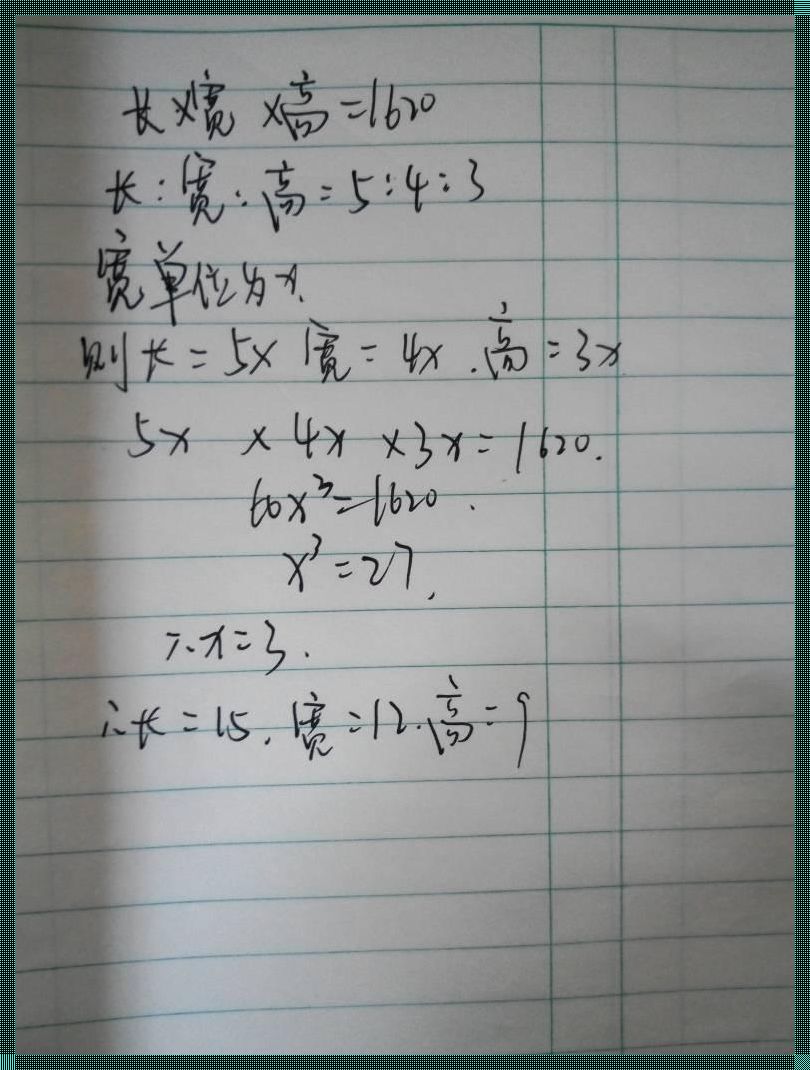 长×宽×高=1620
长:宽:高=5:4:3
宽单位为x.
则长=5x 宽=4x.高=3x
5x ×4x×3x=1620.
60x³=1620.
x³=27.
∴x=3.
∴长=15.宽=12.高=9